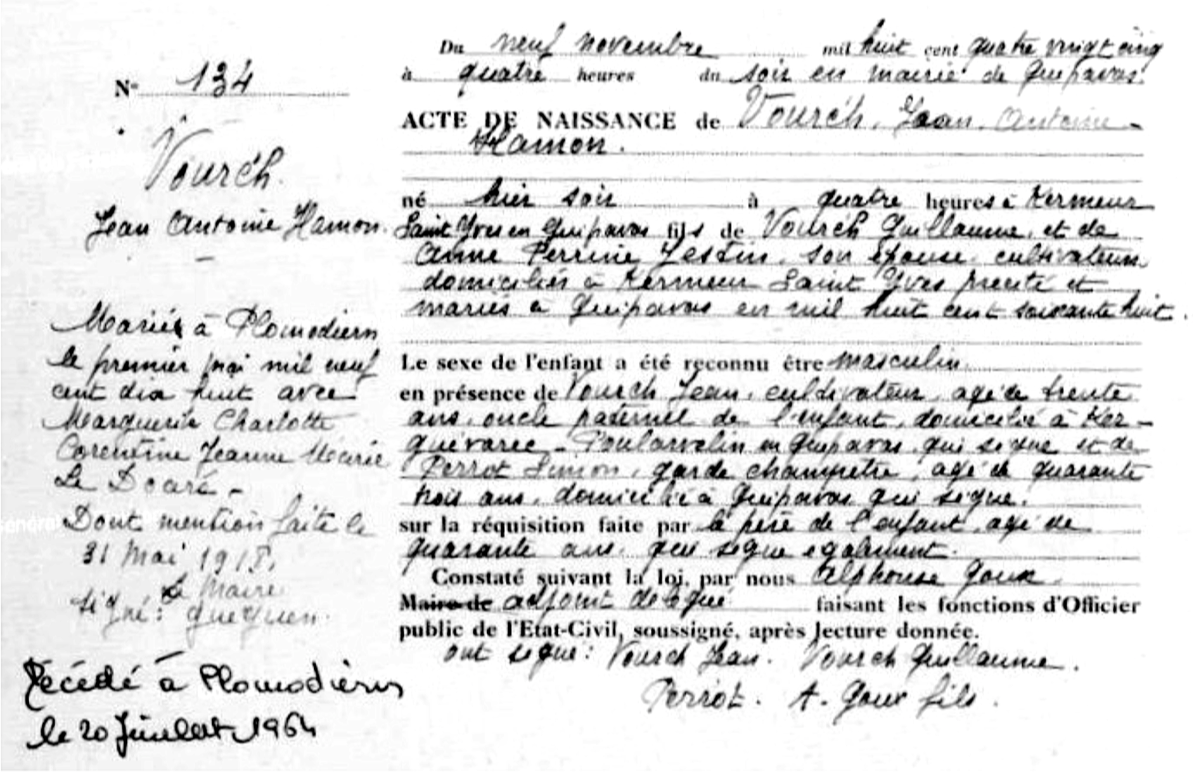 N° 134
Vourc'h.
Jean Antoine Hamon.
Mariés à Plomodiern
le premier mai mil neuf
cent dix huit avec
Marguerite Charlotte
Corentine Jeanne Marie
Le Doaré –
Dont mention faite le
31 Mai 1918.
Le Maire
signé: Queguen.
Décédé à Plomodiern
le 20 Juillet 1964
Du neuf novembre mil huit cent quatre vingt cinq
à quatre heures du soir en mairie de Guipavas.
ACTE DE NAISSANCE de Vourc'h, Jean, Antoine –
Hamon.
né hier soir à quatre heures à Kermeur
Saint Yves en Guipavas fils de Vourc'h Guillaume, et de
Anne Perrine Jestin, son épouse, cultivateurs
domiciliés à Kermeur Saint Yves précité et
mariés à Guipavas en mil huit cent soixante huit.
Le sexe de l'enfant a été reconnu être masculin.
en présence de Vourch Jean, cultivateur, agé de trente
ans, oncle paternel de l'enfant, domicilié à Ker-
guévarec – en Guipavas, qui signe et de
Perrot Simon, garde champetre, agé de quarante
trois ans, domicilié à Guipavas qui signe.
sur la réquisition faite par le père de l'enfant, agé de
quarante ans, qui signe egalement.
Constaté suivant la loi, par nous Alphonse Goux.
Maire de adjoint délégué faisant les fonctions d'Officier
public de l'Etat-Civil, soussigné, après lecture donnée.
ont signé: Vourch Jean. Vourch Guillaume.
Perrot. A. Goux fils.